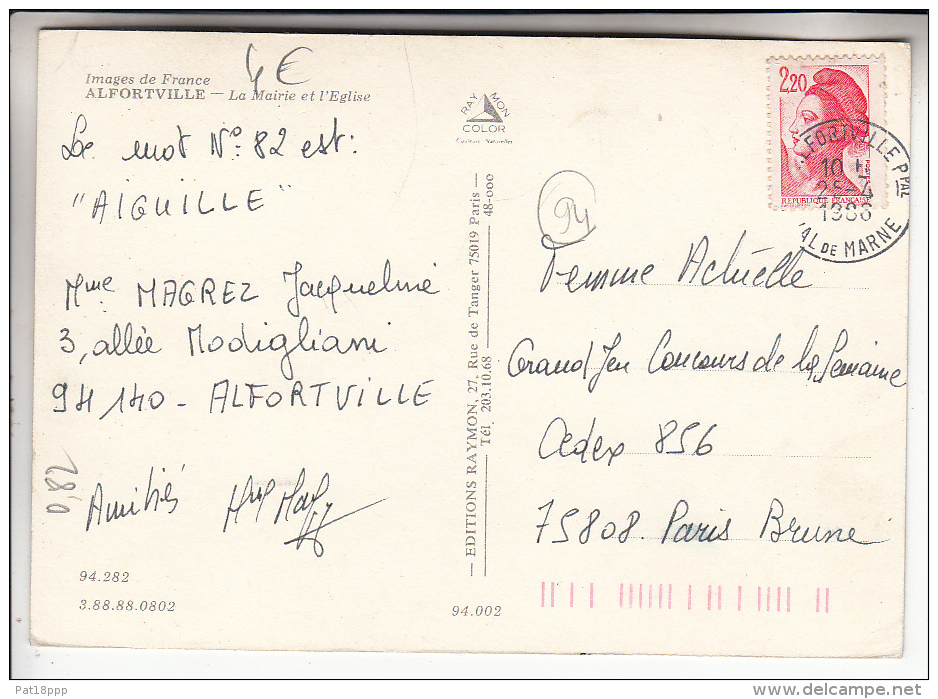 4€
Images de France
ALFORTVILLE — La Mairie et l'Eglise
Le mot N° 82 est:
"AIGUILLE"
Mme MAGREZ Jacqueline
3, allée Modigliani
94 140 - ALFORTVILLE
Amitiés
0,82
94.282
3.88.88.0802
94.002
RAYMON
COLOR
Couleurs Naturelles
— EDITIONS RAYMON, 27, Rue de Tanger 75019 Paris —
Tél 203.10.68 48-000
94
2,20
REPUBLIQUE FRANÇAISE
ALFORTVILLE PPAL
10 H
25-4
1986
VAL DE MARNE
Femme Actuelle
Grand Jeu Concours de la Semaine
Cedex 856
75808. Paris Brune
Pat18ppp
www.delcampe.net